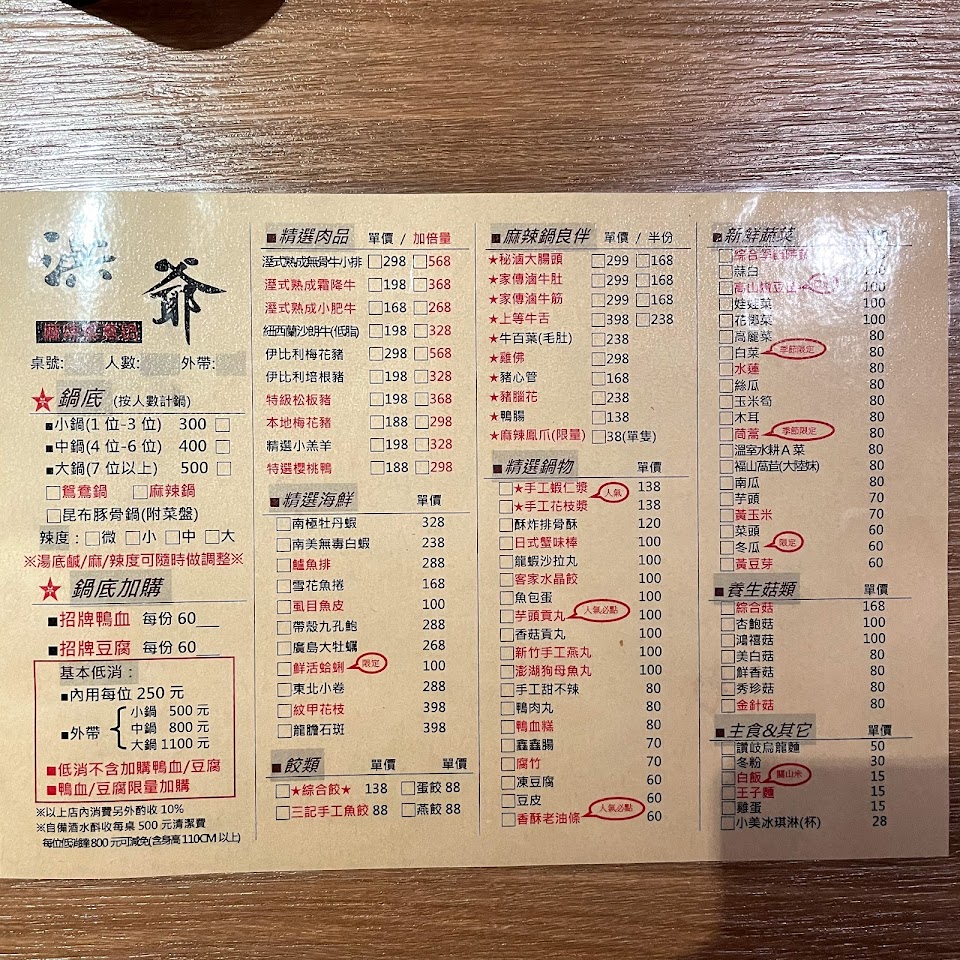 洪爺
桌號: 人數: 外帶:
鍋底 (按人數計鍋)
■小鍋(1 位-3 位) 300 □
■中鍋(4 位-6 位) 400 □
■大鍋(7 位以上) 500 □
□鴛鴦鍋 □麻辣鍋
□昆布豚骨鍋(附菜盤)
辣度：□微 □小 □中 □大
※湯底鹹/麻/辣度可隨時做調整※
鍋底加購
■招牌鴨血 每份 60__
■招牌豆腐 每份 60__
基本低消：
■內用每位 250 元
■外帶
小鍋 500 元
中鍋 800 元
大鍋 1100 元
■低消不含加購鴨血/豆腐
■鴨血/豆腐限量加購
※以上店內消費另外酌收 10%
※自備酒水酌收每桌 500 元清潔費
■精選肉品 單價 / 加倍量
溼式熟成無骨牛小排 □298 □568
溼式熟成霜降牛 □198 □368
溼式熟成小肥牛 □168 □268
紐西蘭沙朗牛(低脂) □198 □328
伊比利梅花豬 □298 □568
伊比利培根豬 □198 □328
特級松板豬 □198 □368
本地梅花豬 □188 □298
精選小羔羊 □198 □328
特選櫻桃鴨 □188 □298
■精選海鮮 單價
□南極牡丹蝦 328
□南美無毒白蝦 238
□鱸魚排 288
□雪花魚捲 168
□虱目魚皮 100
□帶殼九孔鮑 288
□廣島大牡蠣 268
□鮮活蛤蜊 限定 100
□東北小卷 288
□紋甲花枝 398
□龍膽石斑 398
■餃類 單價 單價
□★綜合餃★ 138 □蛋餃 88
□三記手工魚餃 88 □燕餃 88
■麻辣鍋良伴 單價 / 半份
★秘滷大腸頭 □299 □168
★家傳滷牛肚 □299 □168
★家傳滷牛筋 □299 □168
★上等牛舌 □398 □238
★牛百葉(毛肚) □238
★雞佛 □298
★豬心管 □168
★豬腦花 □238
★鴨腸 □138
★麻辣鳳爪(限量) □38(單隻)
■精選鍋物 單價
□★手工蝦仁漿 人氣 138
□★手工花枝漿 138
□酥炸排骨酥 120
□日式蟹味棒 100
□龍蝦沙拉丸 100
□客家水晶餃 100
□魚包蛋 100
□芋頭貢丸 人氣必點 100
□香菇貢丸 100
□新竹手工燕丸 100
□澎湖狗母魚丸 100
□手工甜不辣 80
□鴨肉丸 80
□鴨血糕 80
□鑫鑫腸 70
□腐竹 70
□凍豆腐 60
□豆皮 60
□香酥老油條 人氣必點 60
■新鮮蔬菜
□綜合季節時蔬
□蒜白
□高山嫩豆
□娃娃菜 100
□花椰菜 100
□高麗菜 80
□白菜 季節限定 80
□水蓮 80
□絲瓜 80
□玉米筍 80
□木耳 80
□茼蒿 季節限定 80
□溫室水耕 A 菜 80
□福山萵苣(大陸妹) 80
□南瓜 80
□芋頭 70
□黃玉米 70
□菜頭 60
□冬瓜 限定 60
□黃豆芽 60
■養生菇類 單價
□綜合菇 168
□杏鮑菇 100
□鴻禧菇 100
□美白菇 80
□鮮香菇 80
□秀珍菇 80
□金針菇 80
■主食&其它 單價
□讚岐烏龍麵 50
□冬粉 30
□白飯 關山米 15
□王子麵 15
□雞蛋 15
□小美冰琪淋(杯) 28